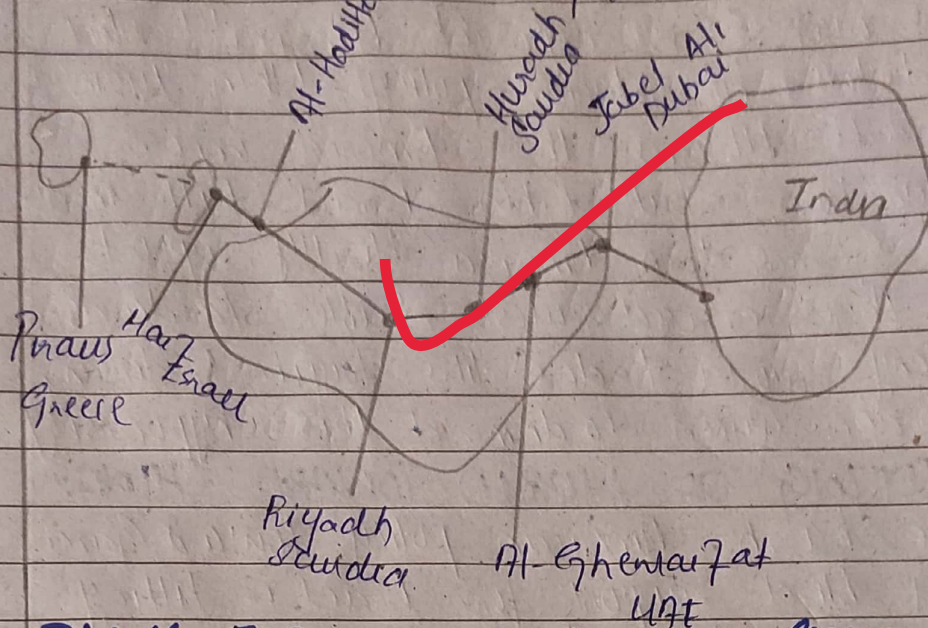 Al-Haditha
Huradh
Saudia
Jabel Ali
Dubai
Indn
Piraus
Greese
Haiz
Esrael
Riyadh
Saudia
Al-Ghewaifat
UAE